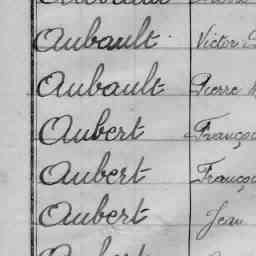 Aubault Victor
Aubault Pierre
Aubert François
Aubert François
Aubert Jean
Aubert